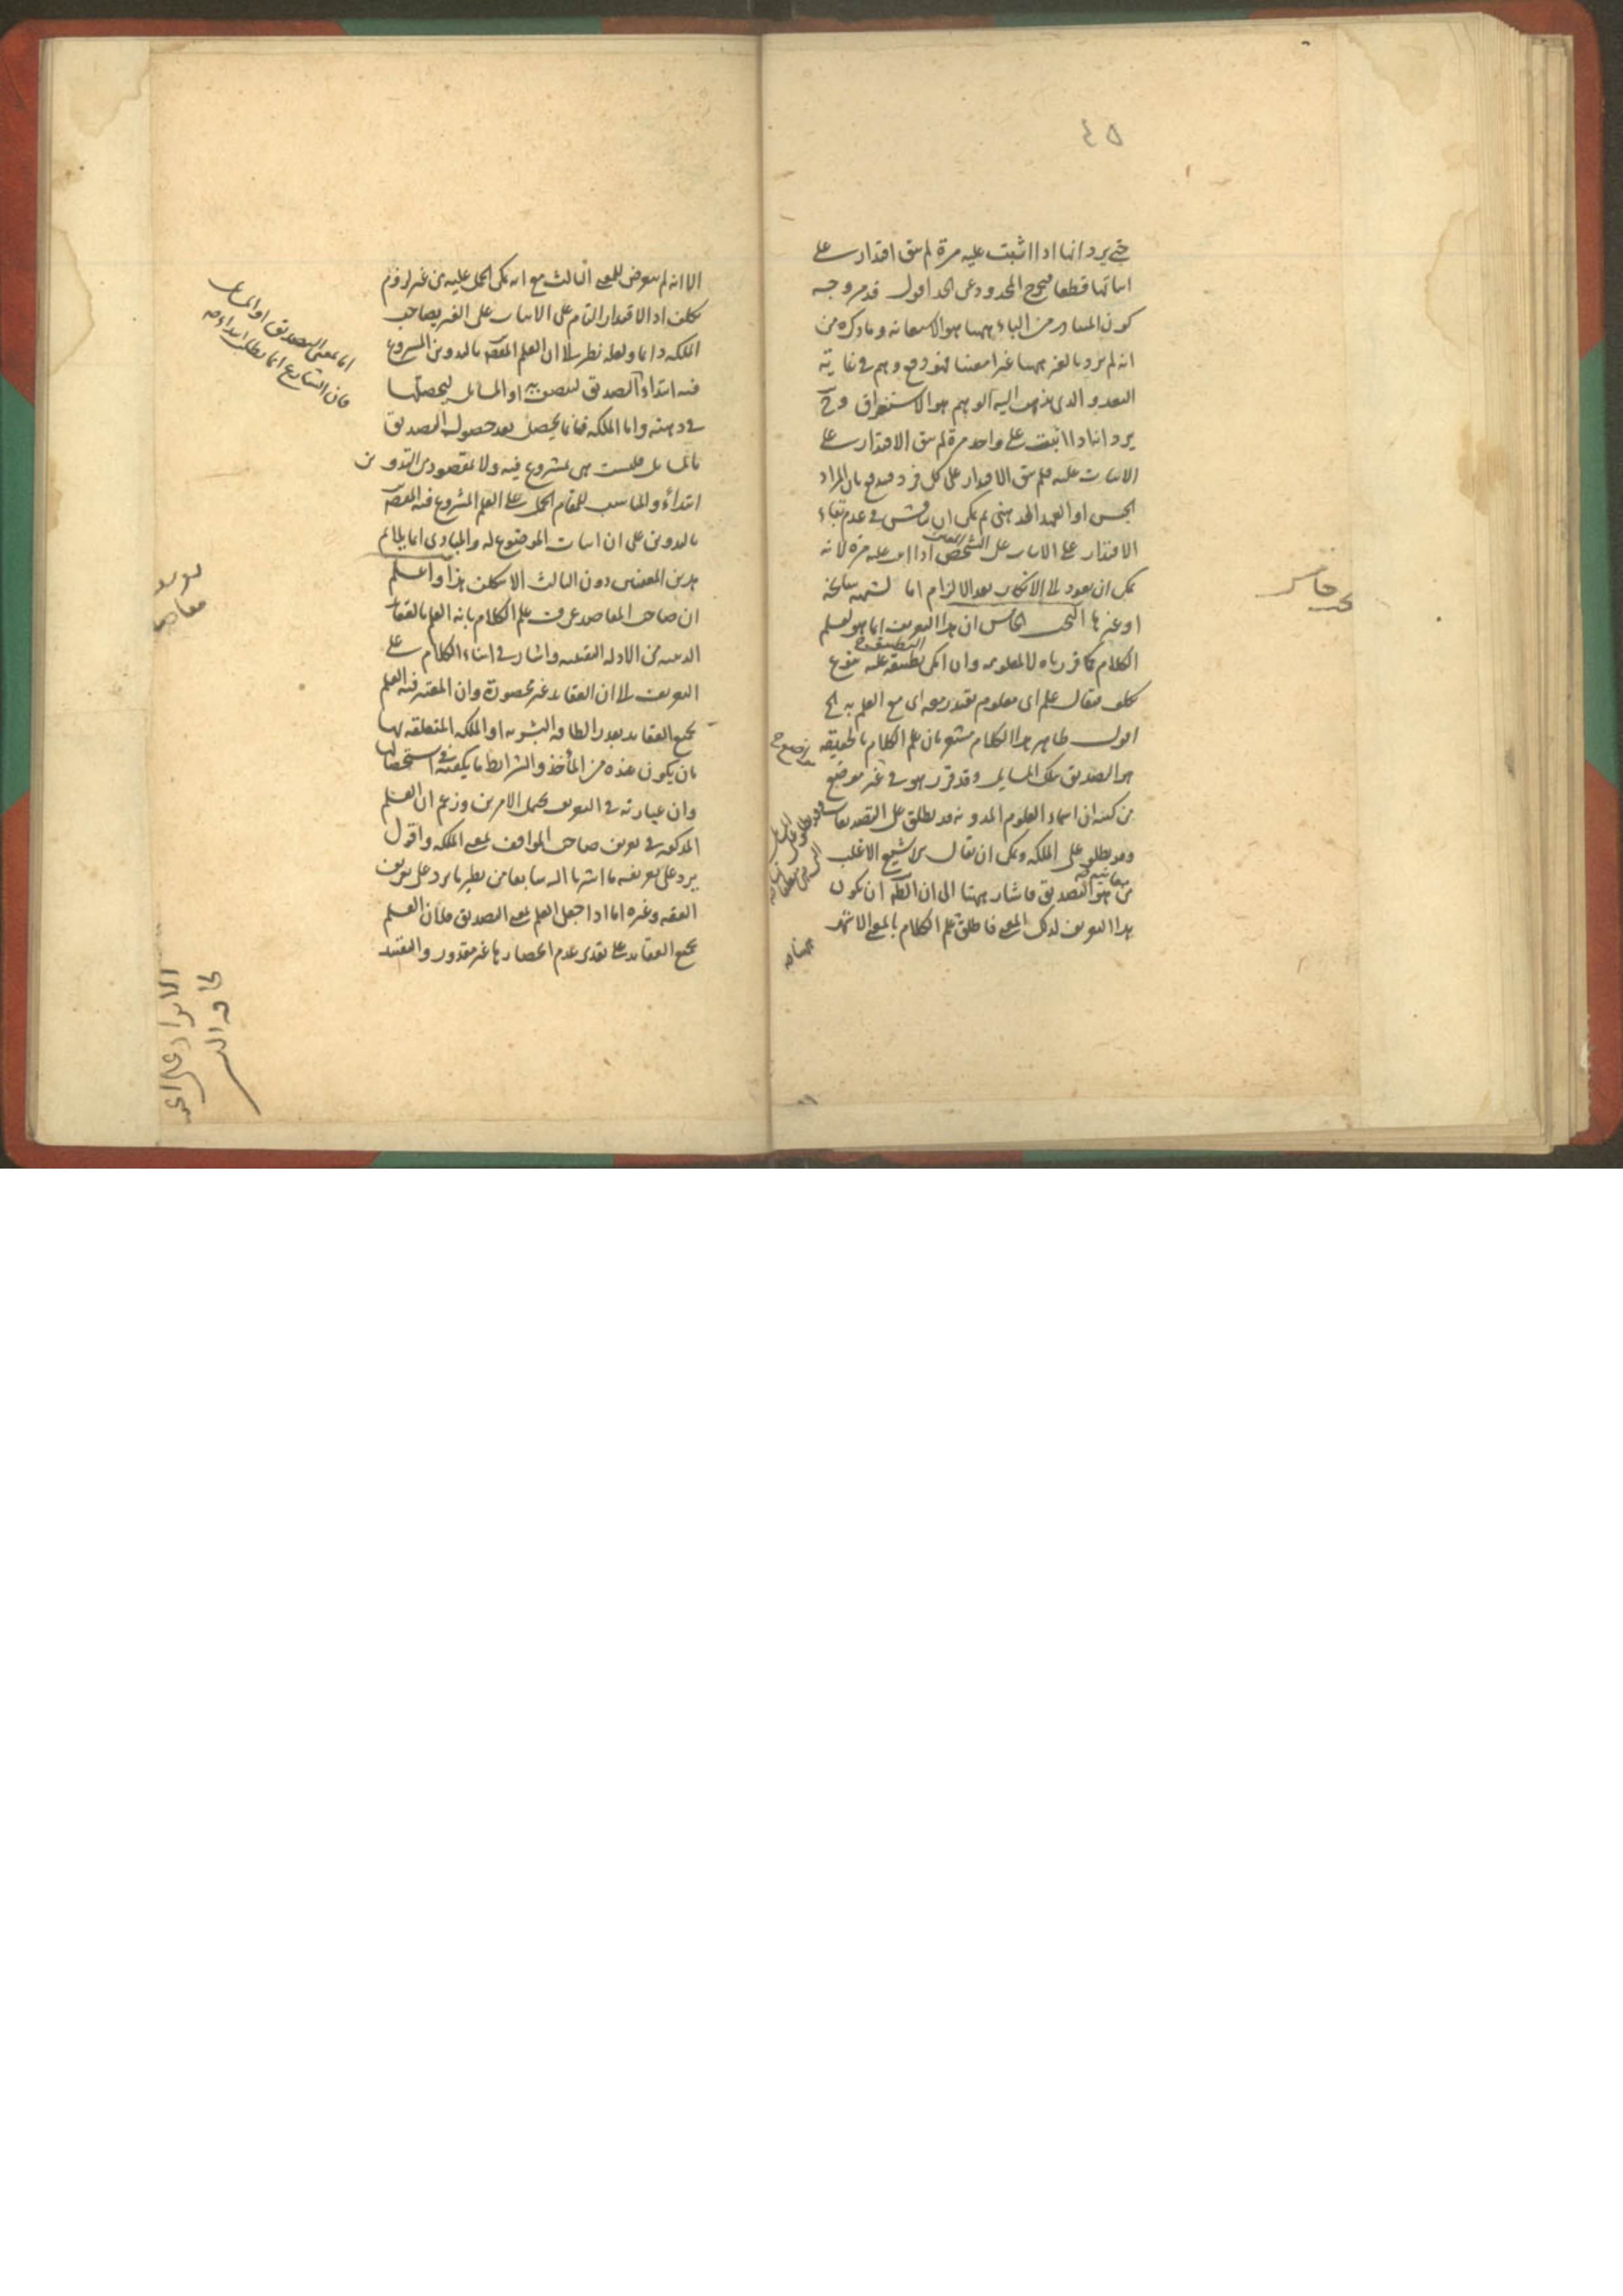 ٤٥
حتى يرد انها اذا اثبت عليه مرة لم يبق اقتدار على
اثباتها قطعا فيخرج المحدود عن الحد اقول قد مر وجه
كون المتبادر من الباء ههنا هو الاستعانة وما ذكره من
انه لم يرد بالغير ههنا غيرا معينا فهو دفع وهم في غاية
البعد والذي يذهب اليه الوهم هو الاستغراق وح
يرد انها اذا اثبت على واحد مرة لم يبق الاقتدار على
الاثبات عليه فلم يبق الاقتدار على كل فرد فيدفع بان المراد
الجنس او العهد الذهني ثم يمكن ان يناقش في عدم بقاء
الاقتدار على الاثبات على الشخص اذا اثبت عليه مرة لانه
يمكن ان يعود الى الانكار بعد الالزام اما لشبهة سانحة
او غيرها البحث الخامس ان هذا التعريف انما هو لعلم
الكلام كما قررناه لا لمعلومه وان امكن تطبيقه عليه بنوع
تكلف فيقال علم اي معلوم يقتدر معه اي مع العلم به الخ
اقول ظاهر هذا الكلام مشعر بان علم الكلام بالحقيقة
هو التصديق بتلك المسايل وقد قرر هو في غير موضع
من كتبه ان اسماء العلوم المدونة قد يطلق على التصديقات
وقد يطلق على الملكة ويمكن ان يقال الاشيع الاغلب
من هو التصديق فاشار ههنا الى ان الظ ان يكون
هذا التعريف لذلك المعنى فاطلق علم الكلام بالمعنى الاشهر
الا انه لم يتعرض للمعنى الثالث مع انه يمكن الحمل عليه من غير لزوم
تكلف اذ الاقتدار التام على الاثبات على الغير يصاحب
الملكة دايما ولعله نظر الى ان العلم المقص بالتدوين المشروع
فيه ابتداء التصديق او المسايل ليحصلها
في ذهنه واما الملكة فانما يحصل بعد حصول التصديق
بالمسايل فليست هي بمشروع فيه ولا مقصود من التدوين
ابتداء والمناسب للمقام الحمل على العلم المشروع فيه المقص
بالتدوين على ان اثبات الموضوع له والمبادي انما يلايم
هذين المعنيين دون الثالث الا بتكلف هذا واعلم
ان صاحب المقاصد عرف علم الكلام بانه العلم بالعقايد
الدينية من الادلة اليقينية واشار في اثناء الكلام على
التعريف الى ان العقايد غير محصورة وان المعتبر فيه العلم
بجميع العقايد بقدر الطاقة البشرية او الملكة المتعلقة بها
بان يكون عنده من المأخذ والشرايط ما يكفيه في استحصالها
وان عبارته في التعريف يحمل الامرين وزعم ان العلم
المذكور في تعريف صاحب المواقف بمعنى الملكة واقول
يرد على تعريفه ما اشرنا اليه سابقا من نظير ما يرد على تعريف
الفقه وغيره اما اذا جعل العلم بمعنى التصديق فلان العلم
بجميع العقايد على تقدير عدم انحصارها غير مقدور والتقييد
اما بمعنى التصديق او المسايل
فان الشارع انما يطلب ابتداء